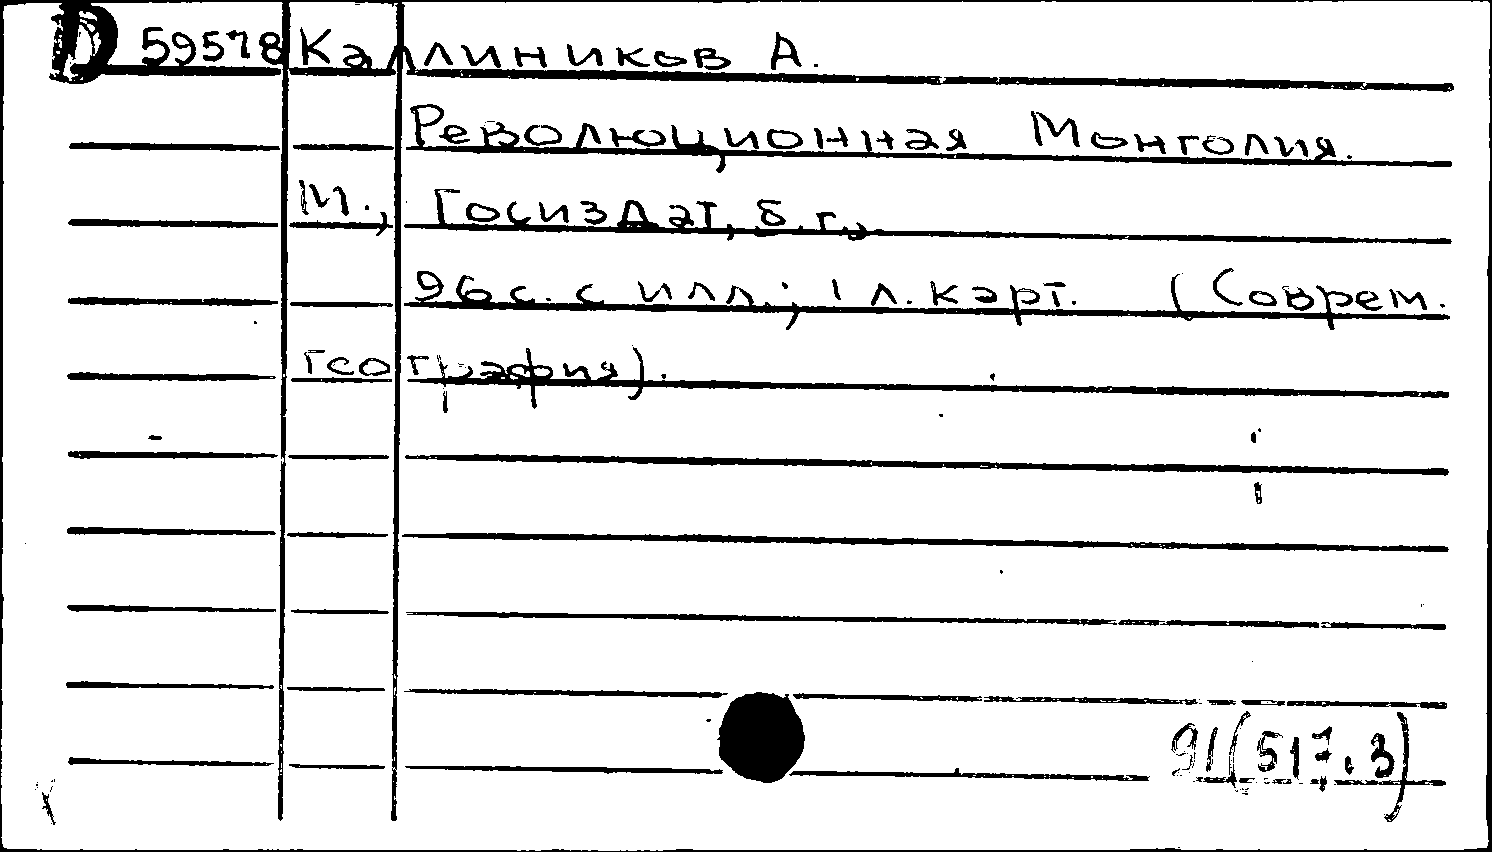 D 59578 Каллиников А.
Революционная Монголия.
М., Госиздат, б.г.,
96 с. с илл.; 1 л. карт. (Соврем.
география).
91(517.3)